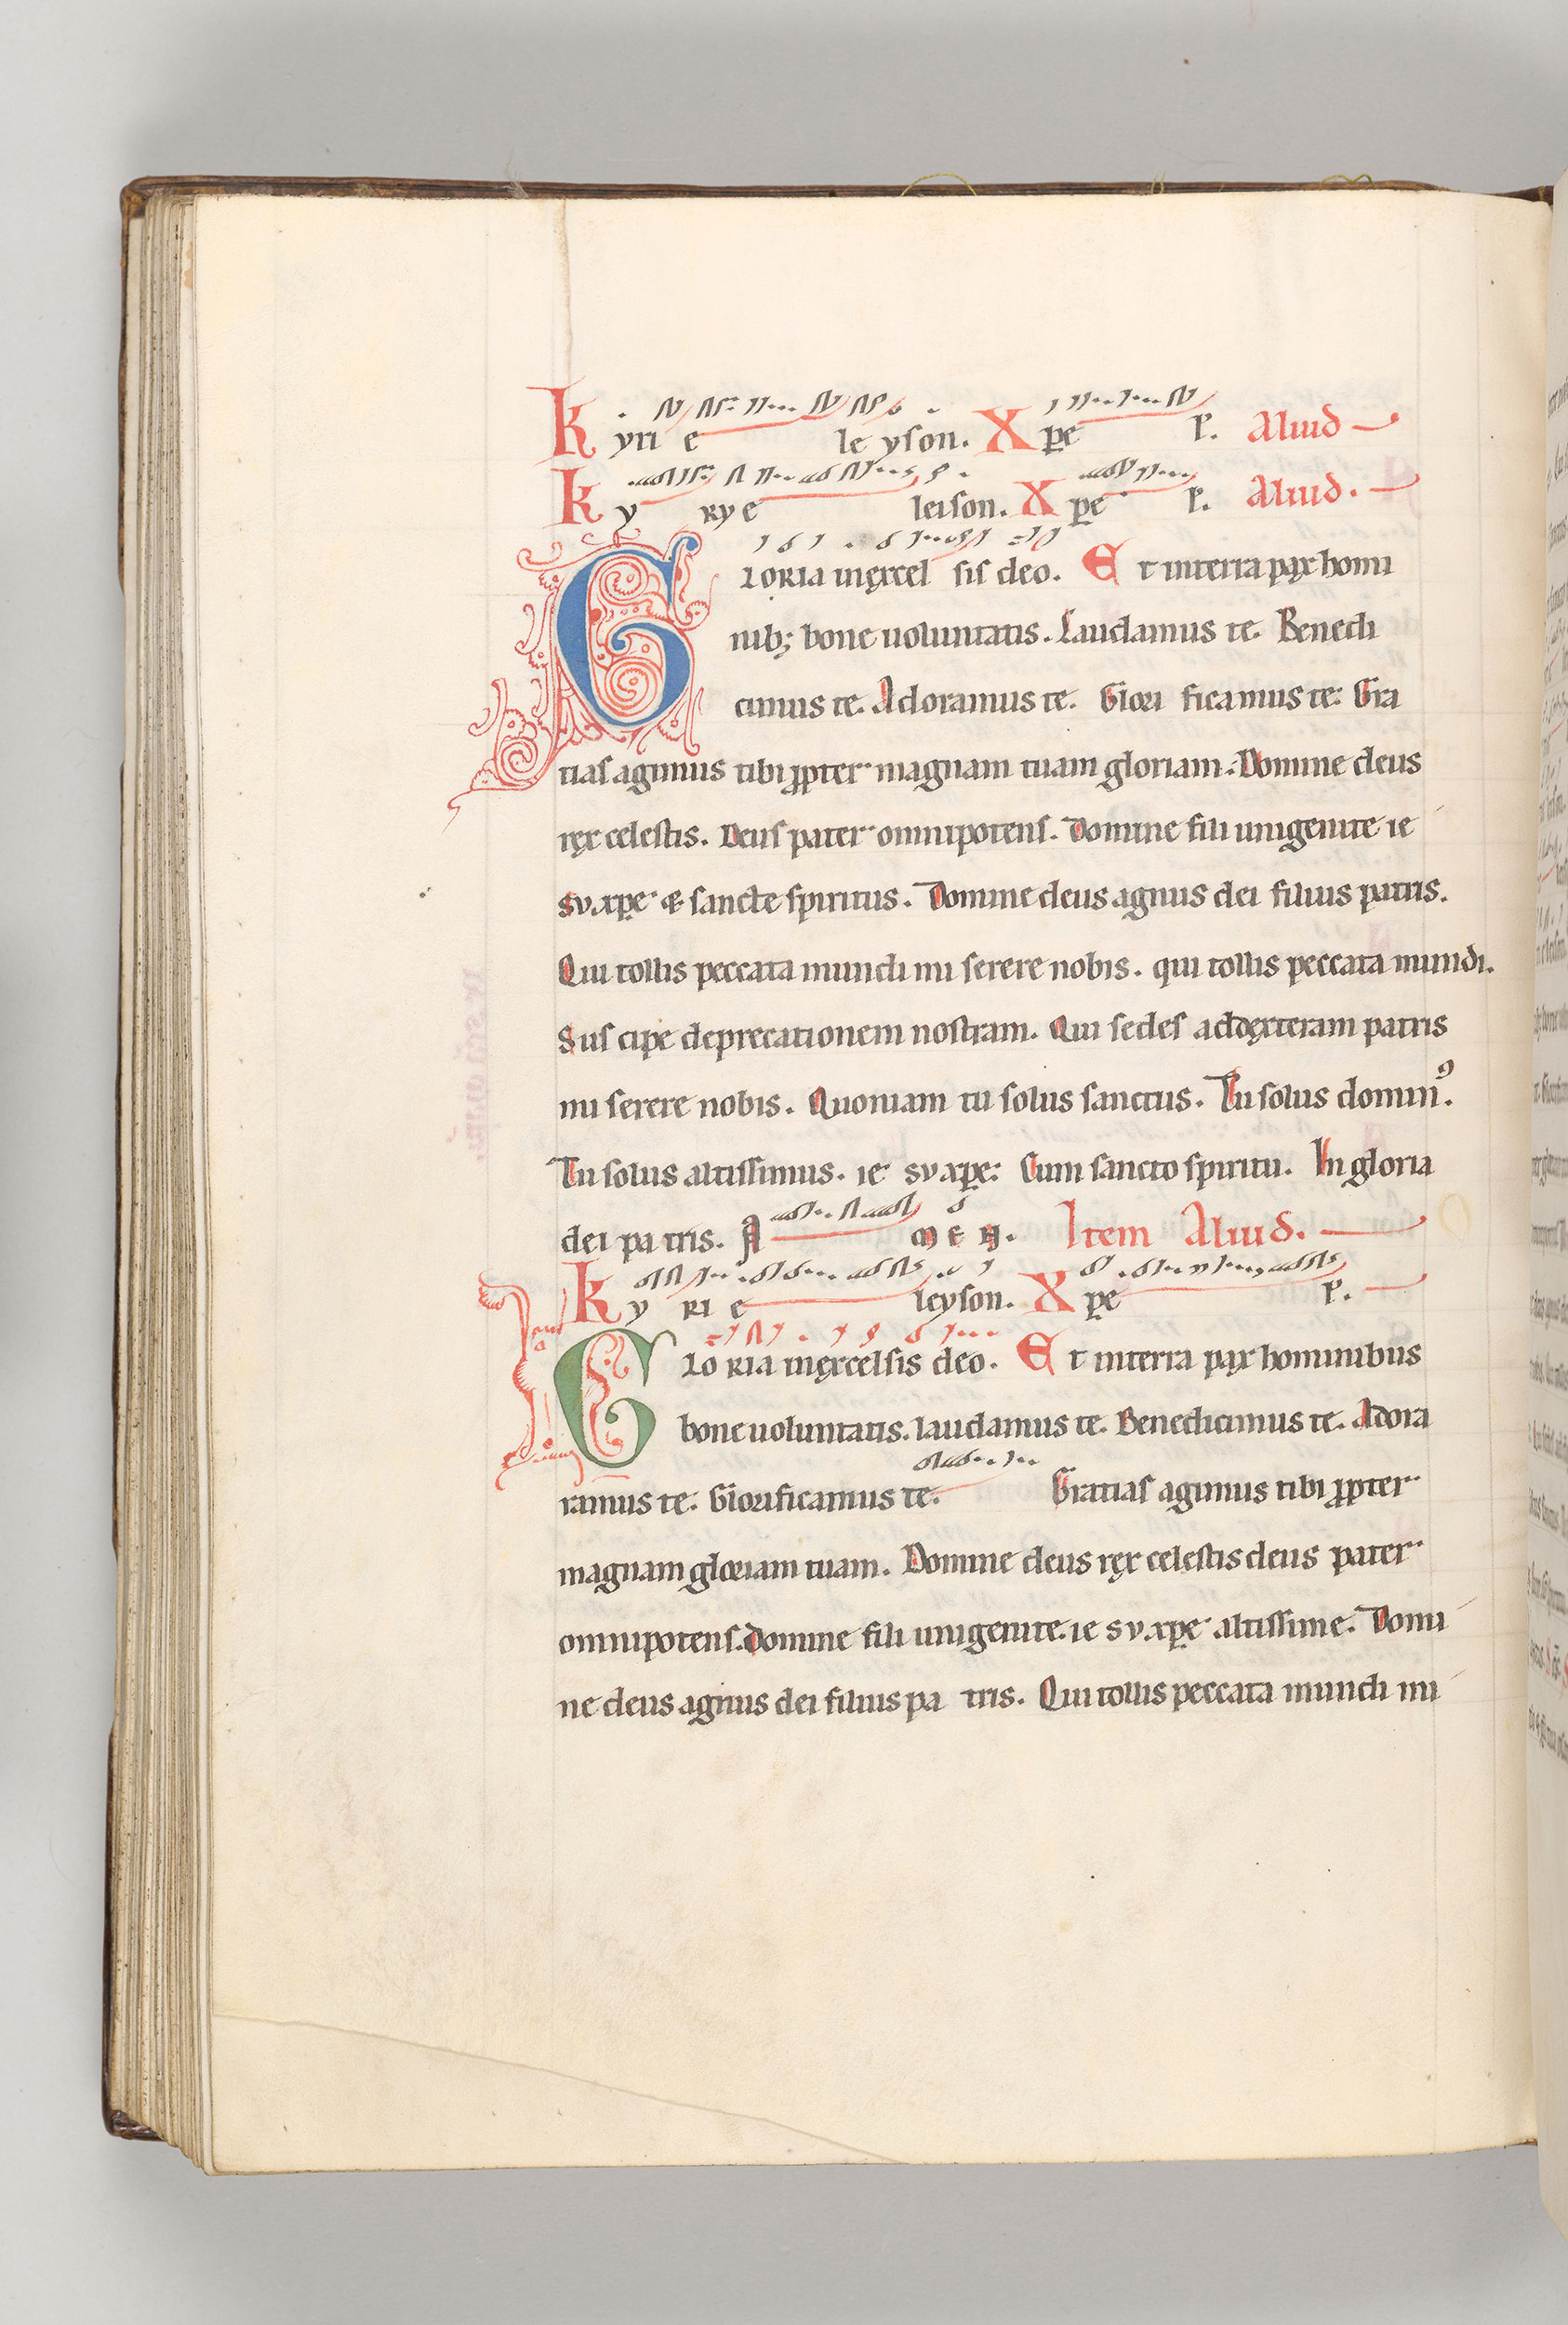 Kyri e leyson. Xpe P. Aliud
Ky ry e leison. Xpe P. Aliud.
GLORIA in ęxcel sis deo. Et in terra pax homi
nib; bone uoluntatis. Laudamus te. Benedi
cimus te. Adoramus te. Glori ficamus te. Gra
tias agimus tibi ꝓpter magnam tuam gloriam. Domine deus
ręx celestis. Deus pater omnipotens. Domine fili unigenite ie
su xp̄e & sancte spiritus. Domine deus agnus dei filius patris.
Qui tollis peccata mundi mi serere nobis. qui tollis peccata mundi.
Sus cipe deprecationem nostram. Qui sedes ad dęxteram patris
mi serere nobis. Quoniam tu solus sanctus. Tu solus domin⁹.
Tu solus altissimus. ie su xp̄e. Cum sancto spiritu. In gloria
dei pa tris. A M E N. Item Aliud.
Ky ri e leyson. Xpe P.
GLO RIA in ęxcelsis deo. Et in terra pax hominibus
bone uoluntatis. laudamus te. Benedicimus te. Adora
ramus te. Glorificamus te. Gratias agimus tibi ꝓpter
magnam gloriam tuam. Domine deus ręx celestis deus pater
omnipotens. domine fili unigenite. ie su xp̄e altissime. Domi
ne deus agnus dei filius pa tris. Qui tollis peccata mundi mi